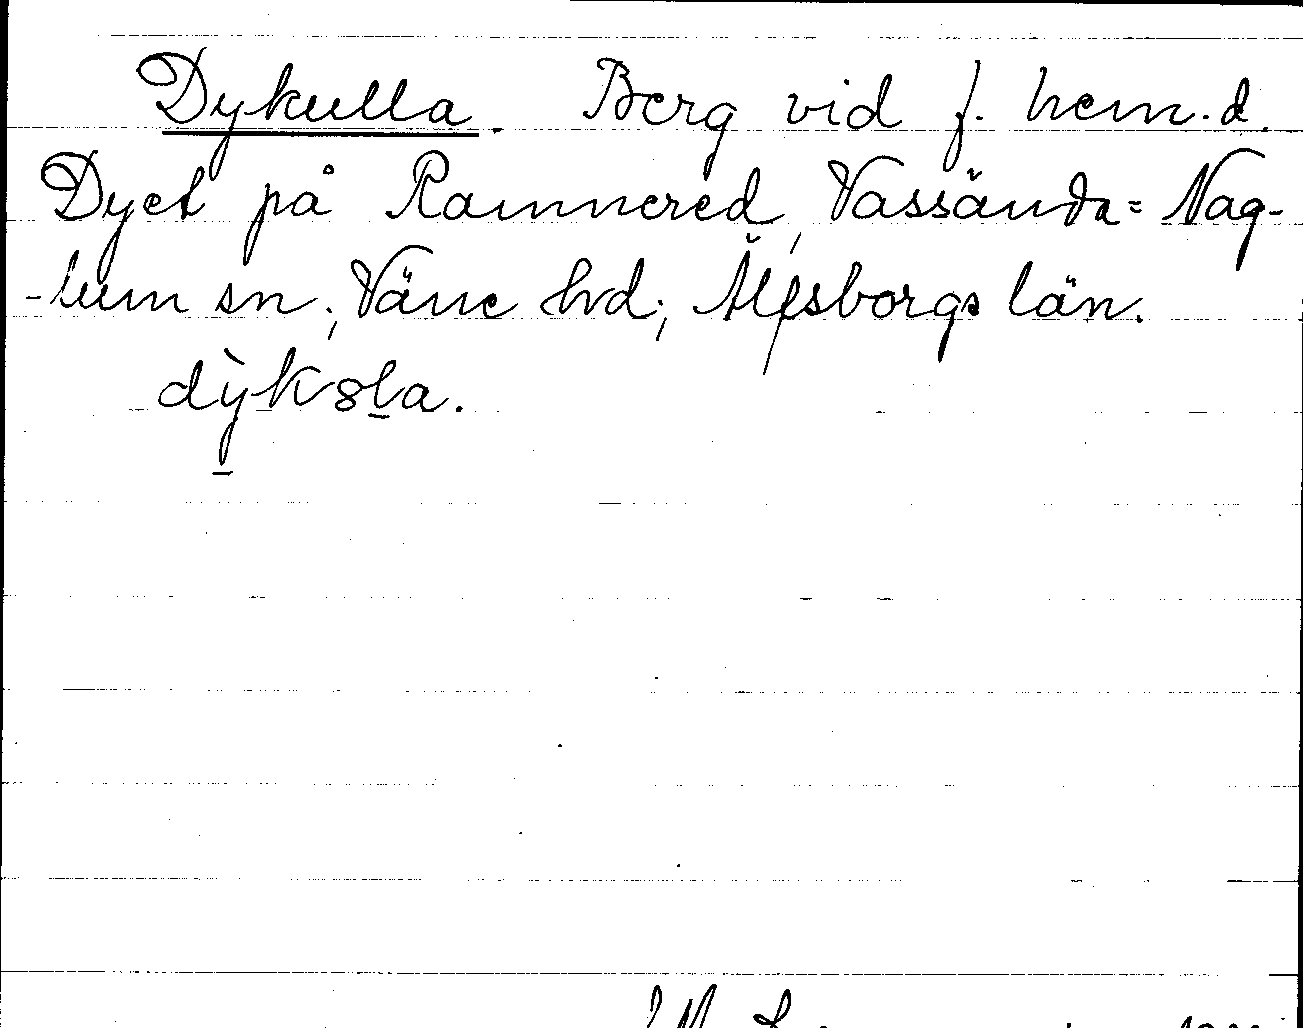 Dykulla. Berg vid f. hem.d.
Dyet på Ramnered, Vassända=Nag-
-lum sn; Väne hrd; Älfsborgs län.
dỳk8la.